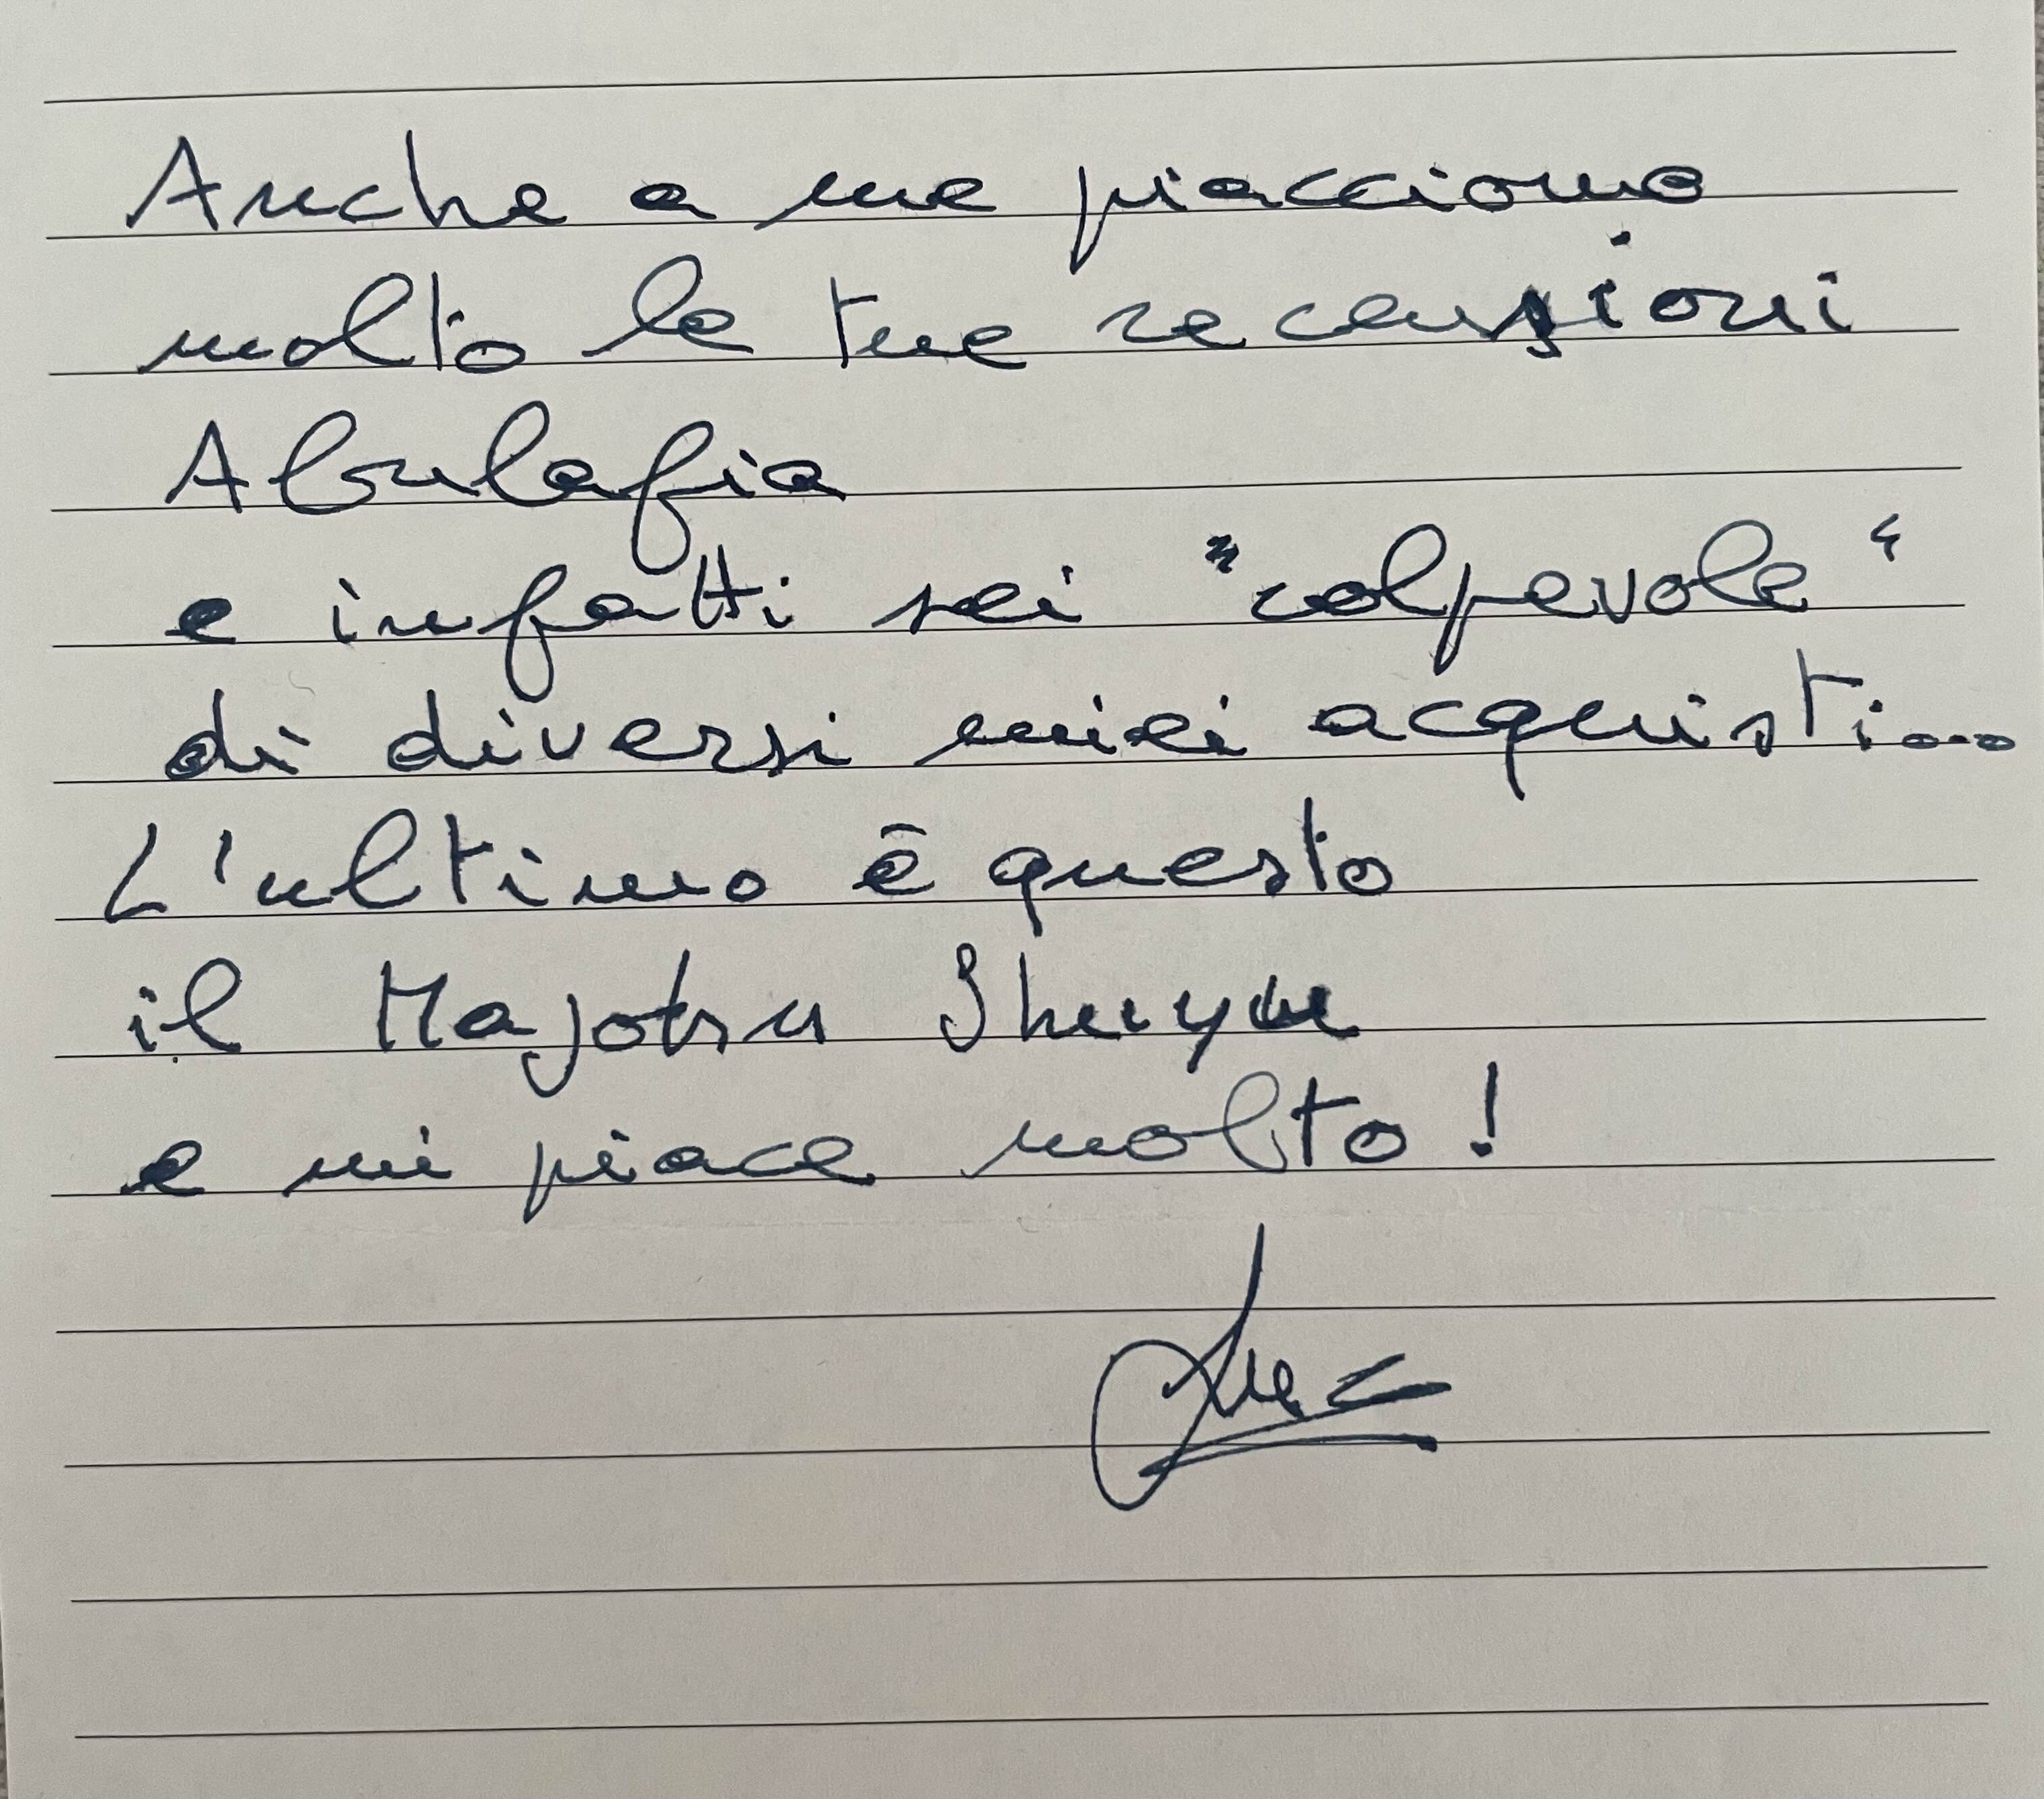 Anche a me piacciono
molto le tue recensioni
Abulafia
e infatti sei "colpevole"
di diversi miei acquisti...
L'ultimo è questo
il Majohn
e mi piace molto!